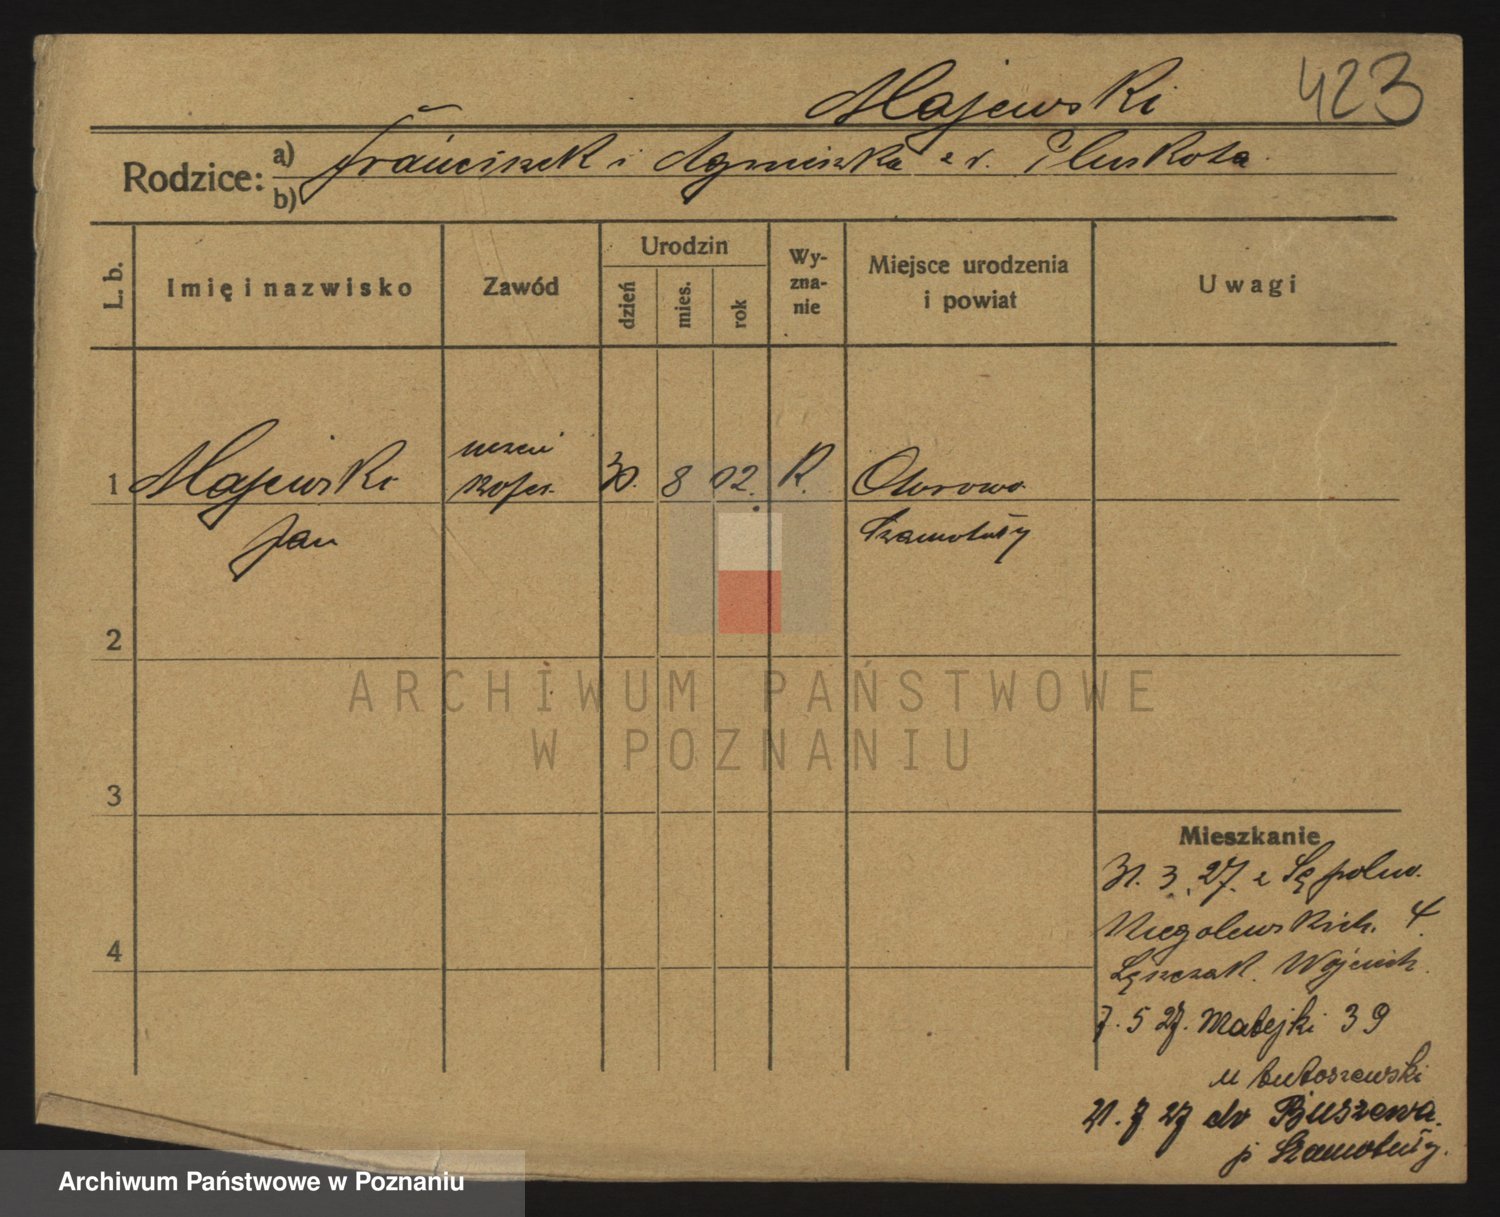 423
Majewski
Rodzice: a) Franciszek i Agnieszka z d. Pluskota
b)
L. b. Imię i nazwisko Zawód Urodzin dzień mies. rok Wyznanie Miejsce urodzenia i powiat Uwagi
1 Majewski 30. 8 02. R. Otorowo
Jan Szamotuły
2
3
4
Mieszkanie
31. 3. 27. z Sępolno.
Niegolewskich. 4.
Wojciech.
7. 5 27. Matejki 39
u
21. 7 27 do Buszewa.
p Szamotuły.
ARCHIWUM PAŃSTWOWE
W POZNANIU
Archiwum Państwowe w Poznaniu